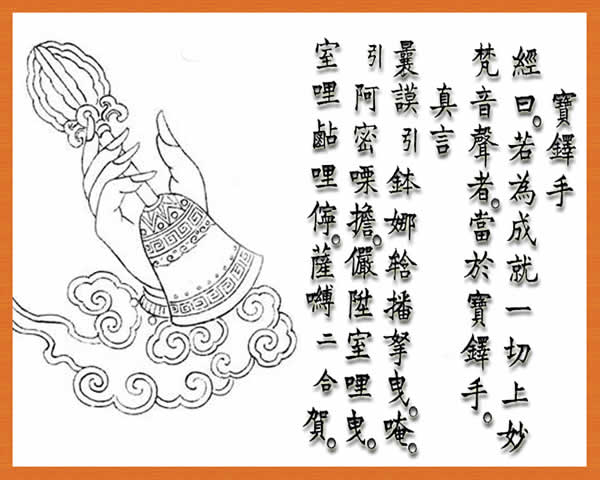 寶鐸手
經曰。若為成就一切上妙
梵音聲者。當於寶鐸手。
真言
曩謨引鉢娜播拏曳。唵。
引阿密㗚擔。儼陛室哩曳。
室哩𪉜哩儜。薩嚩二合賀。